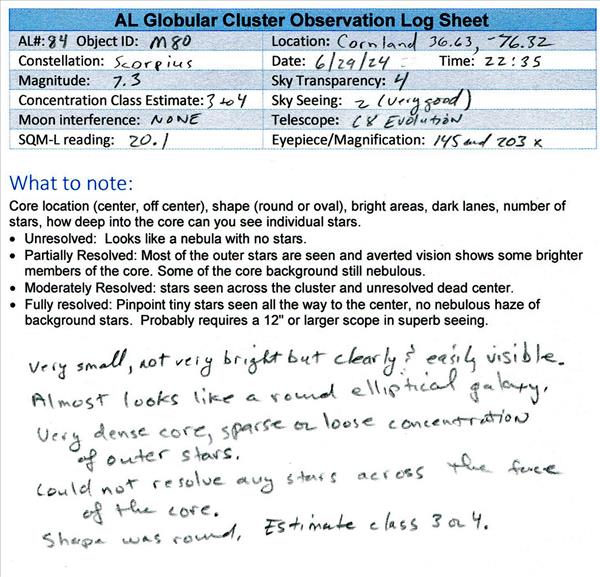 AL Globular Cluster Observation Log Sheet
AL#: 84 Object ID: M80 Location: Cornland 36.63, -76.32
Constellation: Scorpius Date: 6/29/24 Time: 22:35
Magnitude: 7.3 Sky Transparency: 4
Concentration Class Estimate: 3 to 4 Sky Seeing: 2 (very good)
Moon interference: NONE Telescope: C8 Evolution
SQM-L reading: 20.1 Eyepiece/Magnification: 145 and 203 x
What to note:
Core location (center, off center), shape (round or oval), bright areas, dark lanes, number of
stars, how deep into the core can you see individual stars.
• Unresolved: Looks like a nebula with no stars.
• Partially Resolved: Most of the outer stars are seen and averted vision shows some brighter
members of the core. Some of the core background still nebulous.
• Moderately Resolved: stars seen across the cluster and unresolved dead center.
• Fully resolved: Pinpoint tiny stars seen all the way to the center, no nebulous haze of
background stars. Probably requires a 12" or larger scope in superb seeing.
Very small, not very bright but clearly & easily visible.
Almost looks like a round elliptical galaxy.
Very dense core, sparse or loose concentration
of outer stars.
Could not resolve any stars across the face
of the core.
Shape was round. Estimate class 3 or 4.